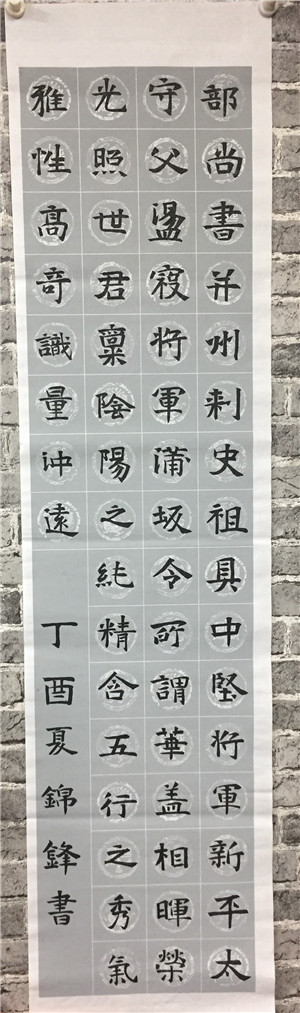 部尚書并州刾史祖具中堅将軍新平太
守父盪寇将軍蒲坂令所謂華盖相暉榮
光照世君稟陰陽之純精含五行之秀氣
雅性髙奇識量冲遠
丁酉夏錦鋒書